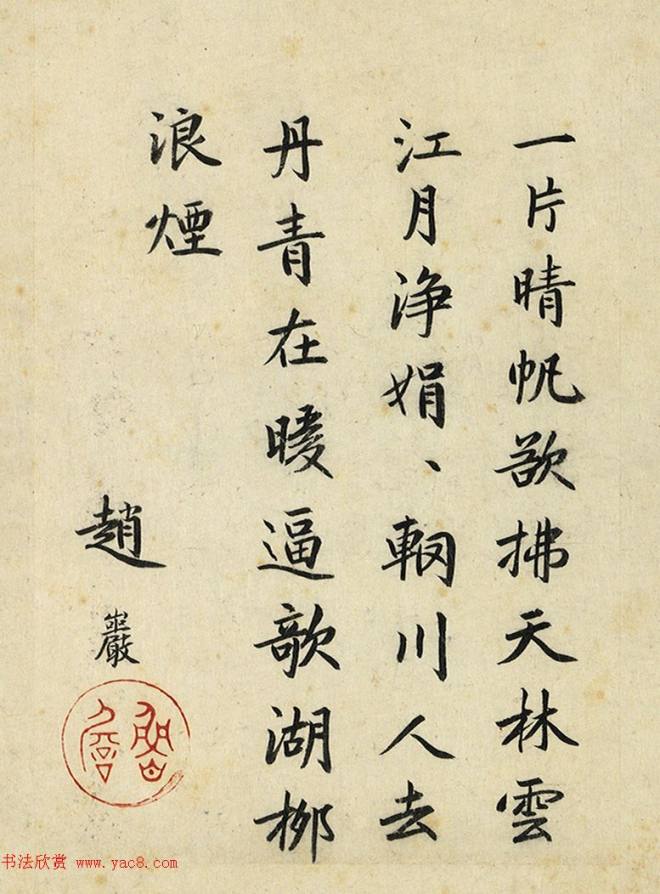 一片晴帆欲拂天林雲
江月浄娟、輞川人去
丹青在暖逼歌湖柳
浪煙
趙巖
书法欣赏 www.yac8.com